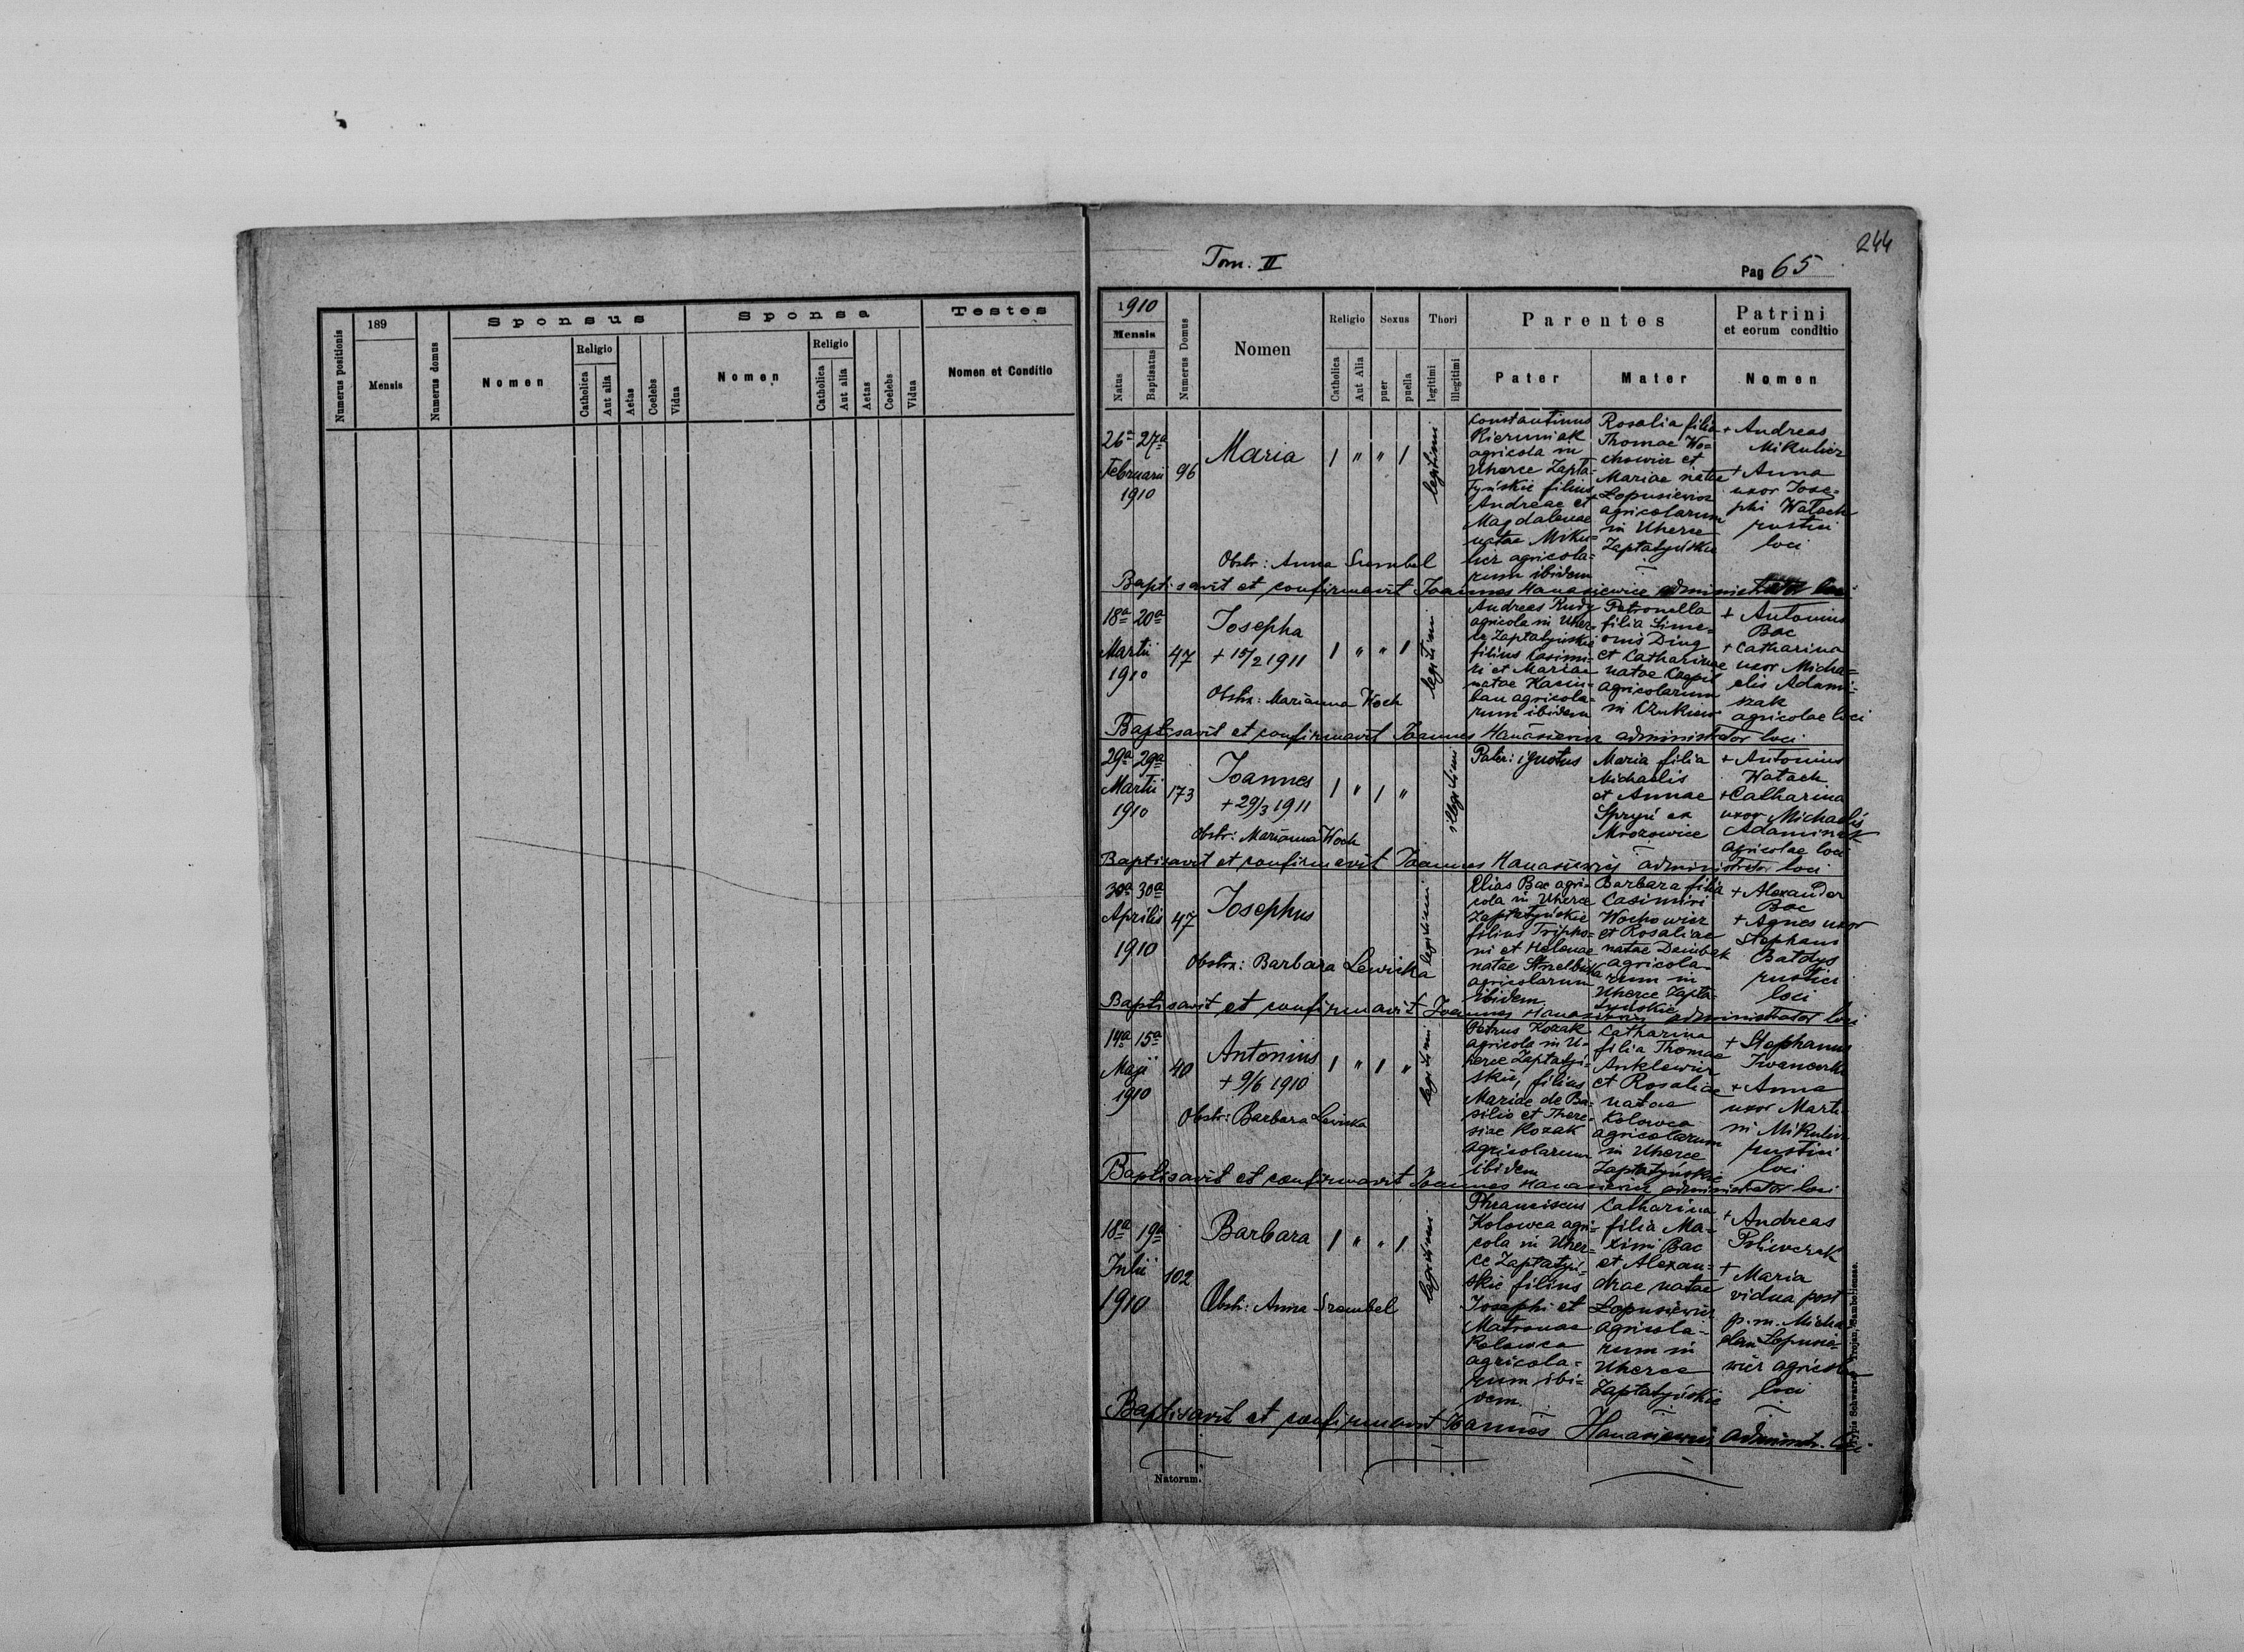 244
Tom. II
Pag 65
Numerus positionis
189
Mensis
Numerus domus
Sponsus
Nomen
Religio
Catholica
Aut alia
Aetas
Coelebs
Vidua
Sponsa
Nomen
Religio
Catholica
Aut alia
Aetas
Coelebs
Vidua
Testes
Nomen et Conditio
1910
Mensis
Natus
Baptisatus
Numerus Domus
Nomen
Religio
Catholica
Aut Alia
Sexus
puer
puella
Thori
legitimi
illegitimi
Parentes
Pater
Mater
Patrini
et eorum conditio
Nomen
26a 27a
Februarii
1910
96
Maria
1 " " 1
legitimi
Constantinus
Kieruniak
agricola in
Uherce Zapła-
tyńskie filius
Andreae et
Magdalenae
natae Miku-
licz agricola-
rum ibidem
Rosalia filia
Thomae Wo-
chowicz et
Mariae natae
Łopusiewicz
agricolarum
in Uherce
Zapłatyńskie
+ Andreas
Mikulicz
+ Anna
uxor Jose-
phi Watach
rustici
loci
Obstr: Anna
Baptisavit et confirmavit Joannes Hanasiewicz administrator loci
18a 20a
Martii
1910
47
Josepha
+ 15/2 1911
1 " " 1
legitimi
Andreas Rudy
agricola in Uher-
ce Zapłatyńskie
filius Casimi-
ri et Mariae
natae
agricola-
rum ibidem
Petronella
filia Sime-
onis Ding
et Catharinae
natae
agricolarum
in
+ Antonius
Bac
+ Catharina
uxor Micha-
elis Adami-
szak
agricolae loci
Obstr: Marianna Woch
Baptisavit et confirmavit Joannes Hanasiewicz administrator loci
29a 29a
Martii
1910
173
Joannes
+ 29/3 1911
1 " 1 "
illegitimi
Pater: ignotus
Maria filia
Michaelis
et Annae
Spryń ex
Mrozowice
+ Antonius
Watach
+ Catharina
uxor Michaelis
Adaminszak
agricolae loci
Obstr: Marianna Woch
Baptisavit et confirmavit Joannes Hanasiewicz administrator loci
30a 30a
Aprilis
1910
47
Josephus
legitimi
Elias Bac agri-
cola in Uherce
Zapłatyńskie
filius Tripho-
ni et Helenae
natae
agricolarum
ibidem
Barbara filia
Casimiri
Wochowicz
et Rosaliae
natae
agricola-
rum in
Uherce Zapła-
tyńskie
+ Alexander
Bac
+ Agnes uxor
Stephani
Batdys
rustici
loci
Obstr: Barbara Lewicka
Baptisavit et confirmavit Joannes Hanasiewicz administrator loci
14a 15a
Maji
1910
40
Antonius
+ 9/6 1910
1 " 1 "
legitimi
Petrus Kozak
agricola in U-
herce Zapłatyń-
skie, filius
Mariae de Ba-
silio et There-
siae Kozak
agricolarum
ibidem
Catharina
filia Thomae
Anklewicz
et Rosaliae
natae
Kolowca
agricolarum
in Uherce
Zapłatyńskie
+ Stephanus
+ Anna
uxor Marti-
ni Mikulicz
rustici
loci
Obstr: Barbara Lewicka
Baptisavit et confirmavit Joannes Hanasiewicz administrator loci
18a 19a
Julii
1910
102
Barbara
1 " " 1
legitimi
Phranciscus
Kolowca agri-
cola in Uher-
ce Zapłatyń-
skie filius
Josephi et
Matronae
Kolowca
agricola-
rum ibi-
dem
Catharina
filia Ma-
ximi Bac
et Alexan-
drae natae
Łopusiewicz
agricola-
rum in
Uherce
Zapłatyńskie
+ Andreas
Poliwczak
+ Maria
vidua post
p. m. Micha-
elem Łopusie-
wicz agricola
loci
Obstr: Anna
Baptisavit et confirmavit Joannes Hanasiewicz administr. loci
Natorum.
Typis Schwarz & Trojan, Samboriensae.